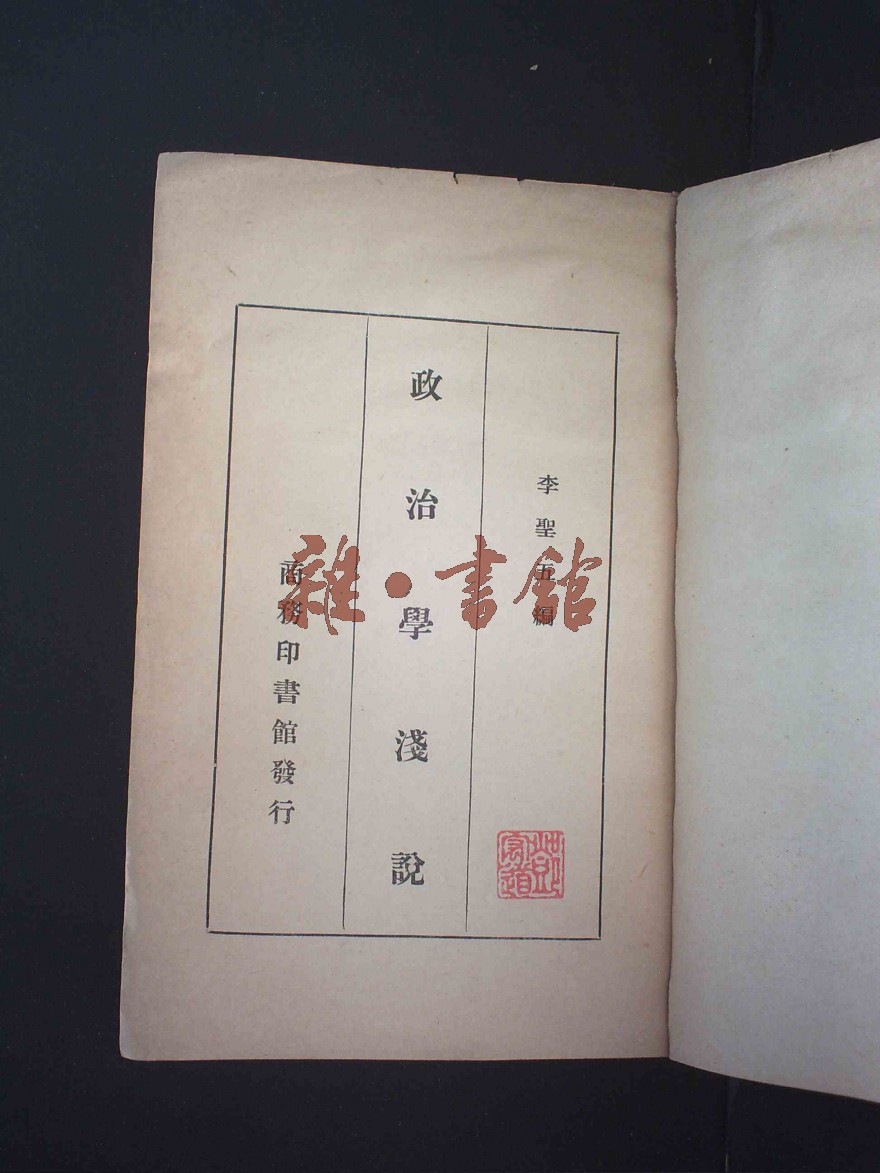 李聖五編
政治學淺說
商務印書館發行
雜·書館